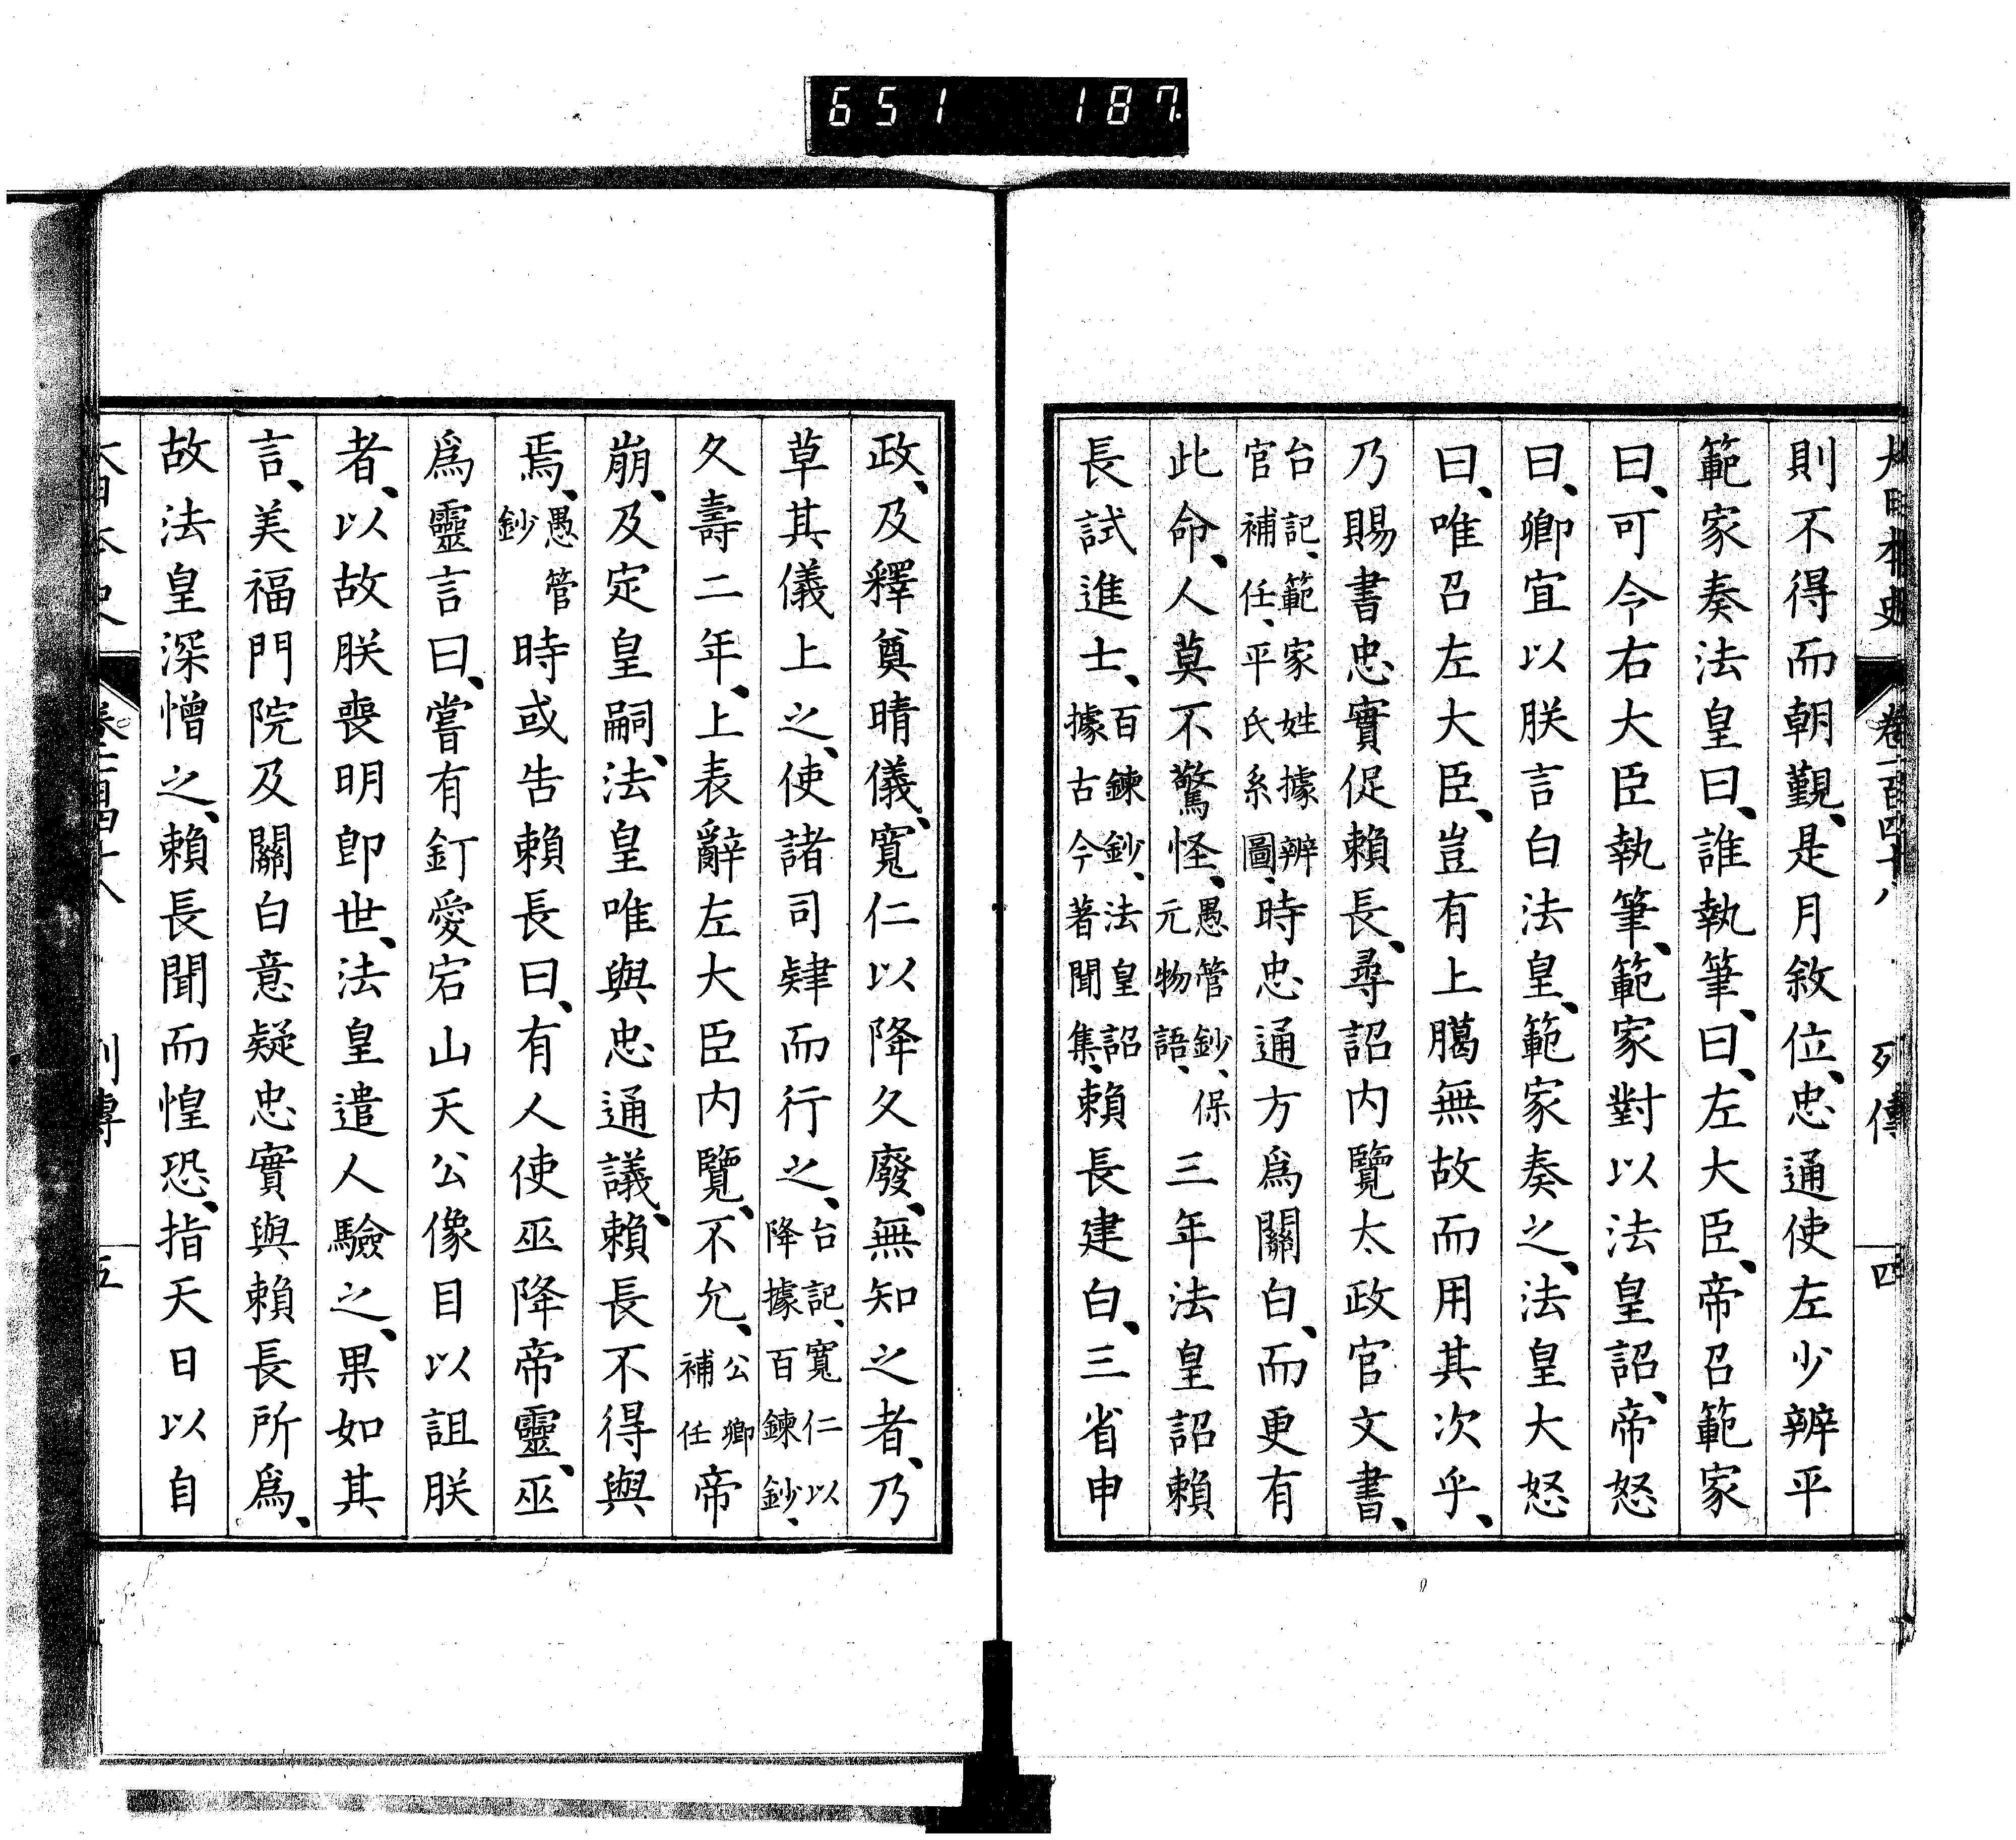 651 187
大日本史 卷一百四十八 列傳 四
則不得而朝覲、是月敘位、忠通使左少辨平
範家奏法皇曰、誰執筆、曰、左大臣、帝召範家
曰、可令右大臣執筆、範家對以法皇詔、帝怒
曰、卿宜以朕言白法皇、範家奏之、法皇大怒
曰、唯召左大臣、豈有上臈無故而用其次乎、
乃賜書忠實促賴長、尋詔内覽太政官文書、
台記、範家姓據辨官補任、平氏系圖、時忠通方爲關白、而更有
此命、人莫不驚怪、愚管鈔、保元物語、三年法皇詔賴
長試進士、百鍊鈔、法皇詔據古今著聞集、賴長建白、三省申
政、及釋奠晴儀、寬仁以降久廢、無知之者、乃
草其儀上之、使諸司肄而行之、台記、寬仁以降據百鍊鈔、
久壽二年、上表辭左大臣内覽、不允、公卿補任帝
崩、及定皇嗣、法皇唯與忠通議、賴長不得與
焉、愚管鈔時或告賴長曰、有人使巫降帝靈、巫
爲靈言曰、嘗有釘愛宕山天公像目以詛朕
者、以故朕喪明卽世、法皇遣人驗之、果如其
言、美福門院及關白意疑忠實與賴長所爲、
故法皇深憎之、賴長聞而惶恐、指天日以自
大日本史 卷一百四十八 列傳 五